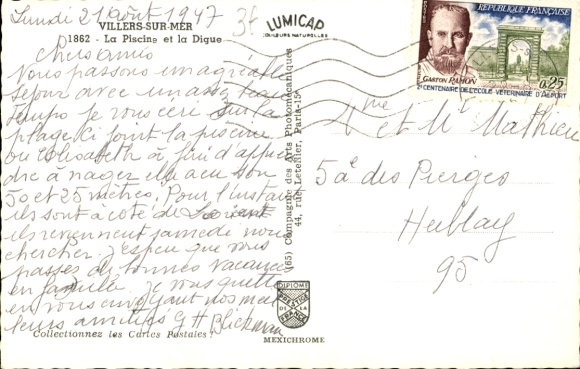 Lundi 21 août 1947
3f
VILLERS-SUR-MER
1862 - La Piscine et la Digue
LUMICAP
COULEURS NATURELLES
Chers amis
Nous passons un agréable
séjour avec un assez beau
temps je vous écris sur la
plage. Ci joint la piscine
ou Elisabeth à fini d'appren
dre à nager elle a eu son
50 et 25 mètres. Pour l'instant
ils sont à côté de Lorient
ils reviennent samedi nous
chercher. j'espère que vous
passez de bonnes vacances
en famille je vous quitte
en vous envoyant nos meil
leurs amitiés G H Blickman
Collectionnez les Cartes Postales !
(65) Compagnie des Arts Photomécaniques
44, rue Letellier, Paris-15e
DIPLOME
PRESTIGE
DE LA
FRANCE
MEXICHROME
RÉPUBLIQUE FRANÇAISE
GASTON RAMON
0,25
2e CENTENAIRE DE L'ÉCOLE VÉTÉRINAIRE D'ALFORT
Mr et Me Mathieu
5 des Pierges
Herblay
95